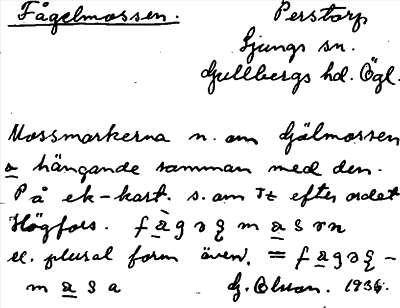 Fågelmossen.
Perstorp
Ljungs sn.
Gullbergs hd. Ögl.
Mossmarkerna n. om Gälmossen
a hängande samman med den.
På ek-kart. s. om Tz efter ordet
Högfors. fàgəɀ masən
el. plural form även. = fagəɀ-
masa G. Olson. 1936.